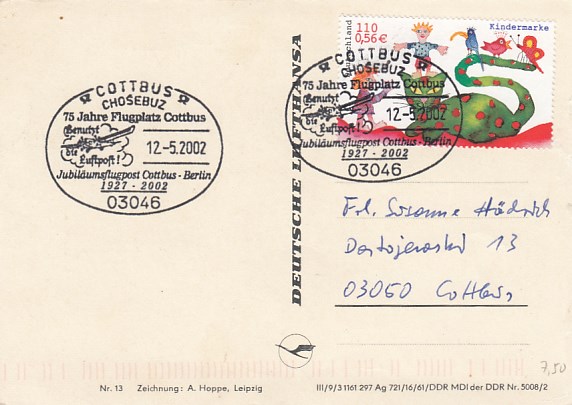 COTTBUS
CHOSEBUZ
75 Jahre Flugplatz Cottbus
Benutzt
die
Luftpost!
12.-5.2002
Jubiläumsflugpost Cottbus - Berlin
1927 - 2002
03046
Deutschland
110
0,56€
Kindermarke
COTTBUS
CHOSEBUZ
75 Jahre Flugplatz Cottbus
Benutzt
die
Luftpost!
12.-5.2002
Jubiläumsflugpost Cottbus - Berlin
1927 - 2002
03046
DEUTSCHE LUFTHANSA
Frl. Susanne Hädrich
Dostojewski 13
03050 Cottbus
7,50
Nr. 13 Zeichnung: A. Hoppe, Leipzig
III/9/3 1161 297 Ag 721/16/61/DDR MDI der DDR Nr. 5008/2